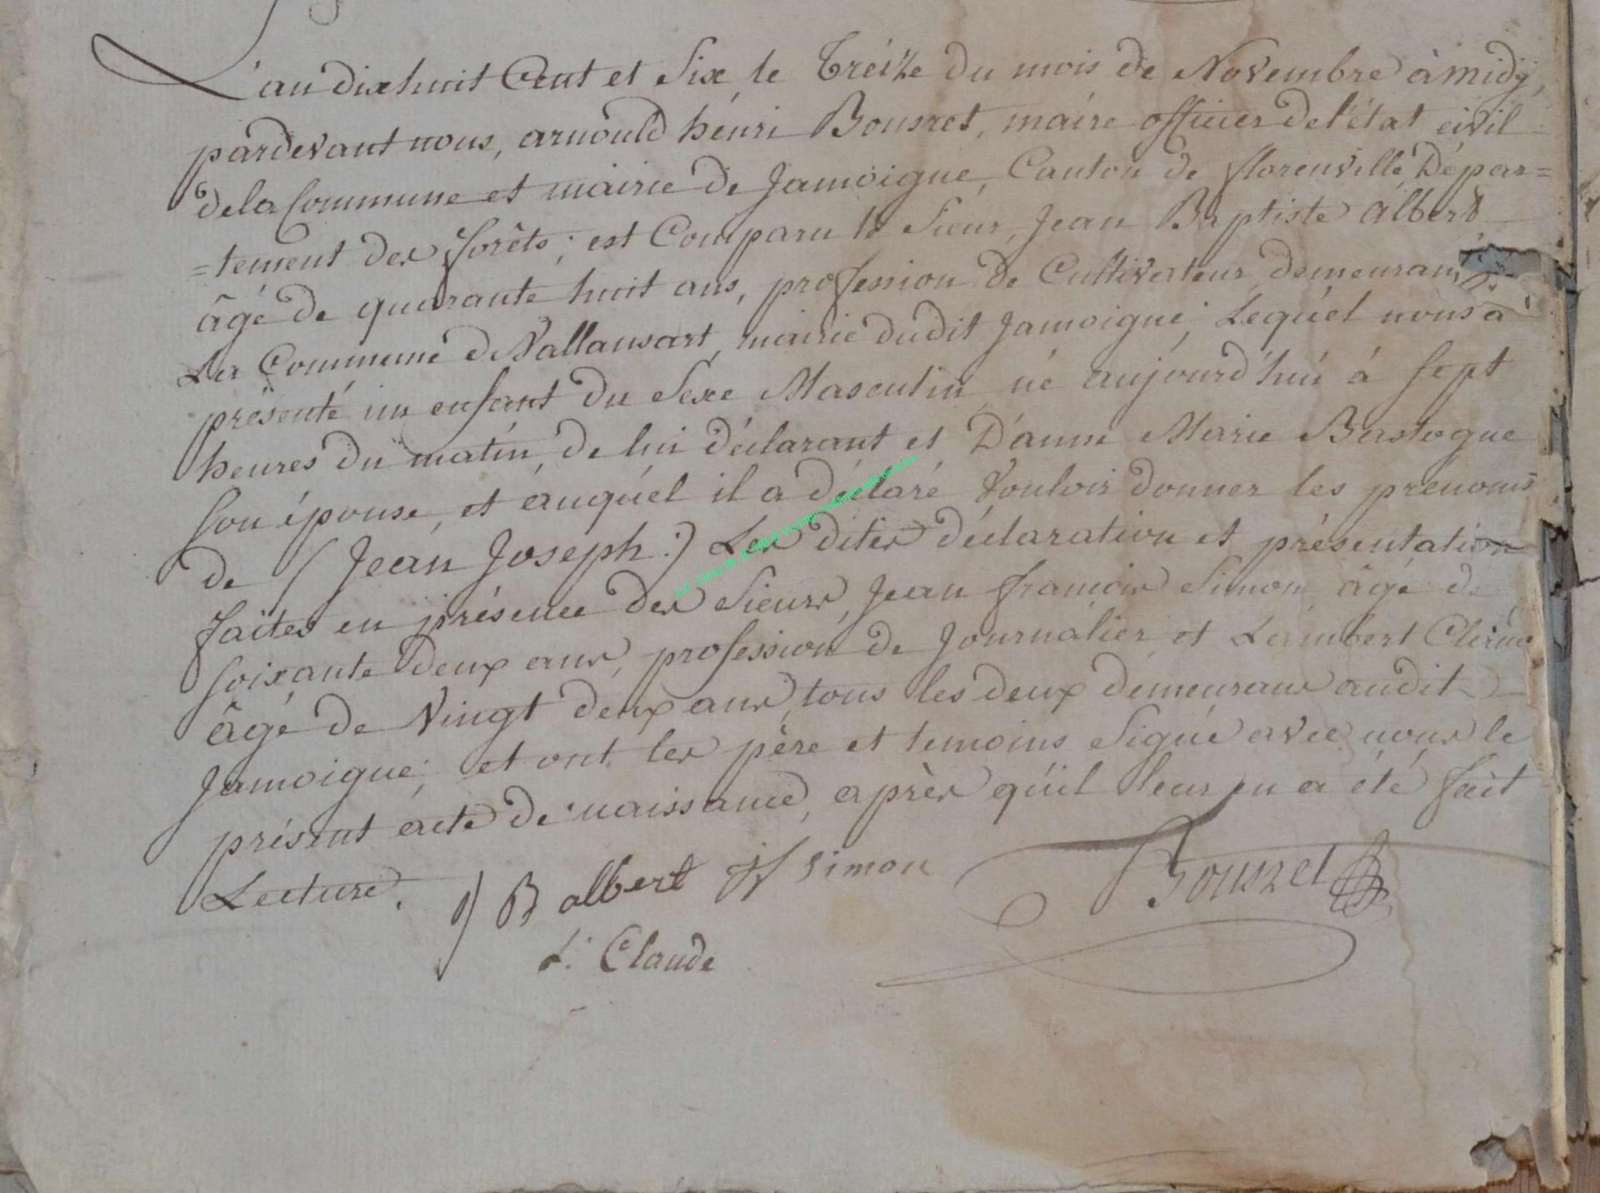 L'an dix huit Cent et Six, le Tréize du mois de Novembre à midy,
pardevant nous, arnould hénri Bousret, maire officier de l'état civil
de la Commune et mairie de Jamoigne, Canton de florenville, Dépar=
=tement des forêts; est Comparu le Sieur, Jean Baptiste albert
âgé de quarante huit ans, profession de Cultivateur demeurant
La Commune de Vallansart, mairie dudit Jamoigne; Lequél nous a
présenté un enfant du Séxe Masculin né aujourd'hui à Sept
heures du matin, de lui déclarant et D'anne Marie Bastogne
Son épouse, et auquél il a déclaré Vouloir donner les prenoms
de (Jean Joseph:) Les dites déclaration et présentation
faites en présence des Sieurs, Jean françois Simon, âgé de
Soixante Deux ans, profession de Journalier, et Lambert
âgé de Vingt deux ans, tous les deux demeurans audit
Jamoigne; et ont les père et temoins Signé avec nous le
présent acte de naissance, après qu'il leur en a été fait
Lecture.
J B albert jf simon Bousret
L. Claude